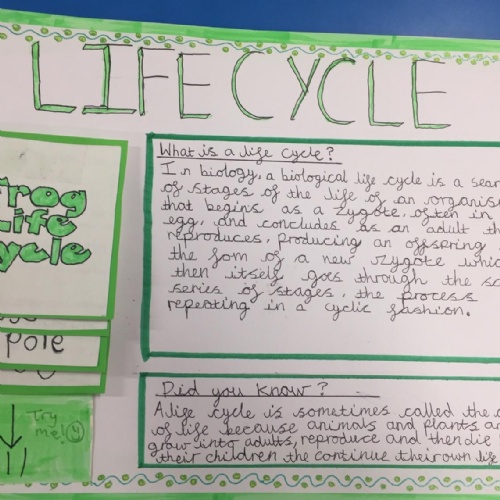 LIFE CYCLE
Frog
Life
ycle
pole
Try
me!
What is a life cycle?
In biology, a biological life cycle is a
of stages of the life of an
that begins as a zygote, often in
egg, and concludes as an adult
reproduces, producing an offspring
the form of a new zygote
then itself goes through the
series of stages, the process
repeating in a cyclic fashion.
Did you know?
A life cycle is sometimes called the
of life because animals and plants
grow into adults, reproduce and then die
their children the continue their own life